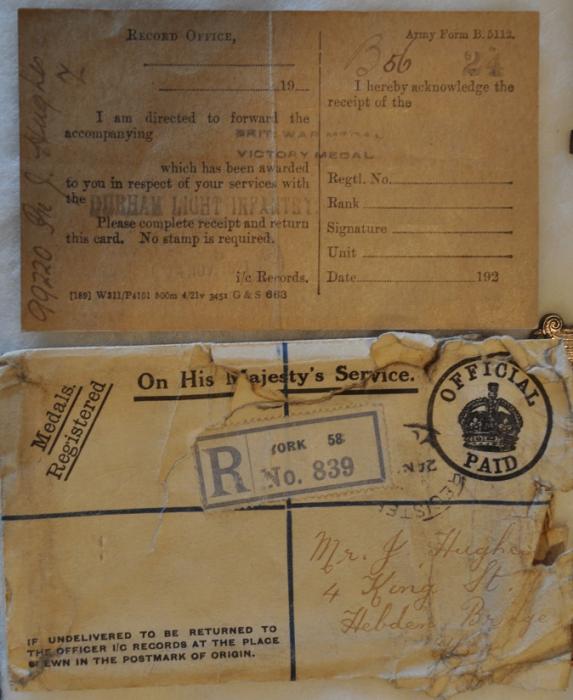 99220 Pte J. Hughes
RECORD OFFICE,
19
I am directed to forward the
accompanying
BRIT: WAR MEDAL
VICTORY MEDAL
which has been awarded
to you in respect of your services with
the DURHAM LIGHT INFANTRY.
Please complete receipt and return
this card. No stamp is required.
i/c Records.
[189] W211/P4101 500m 4/21v 3451 G & S 663
Army Form B. 5112.
B 56 24
I hereby acknowledge the
receipt of the
Regtl. No.
Rank
Signature
Unit
Date 192
Medals.
Registered
On His Majesty's Service.
OFFICIAL
PAID
R
YORK 58
No. 839
Mr. J. Hughes
4 King St.
Hebden Bridge
IF UNDELIVERED TO BE RETURNED TO
THE OFFICER I/C RECORDS AT THE PLACE
SHEWN IN THE POSTMARK OF ORIGIN.